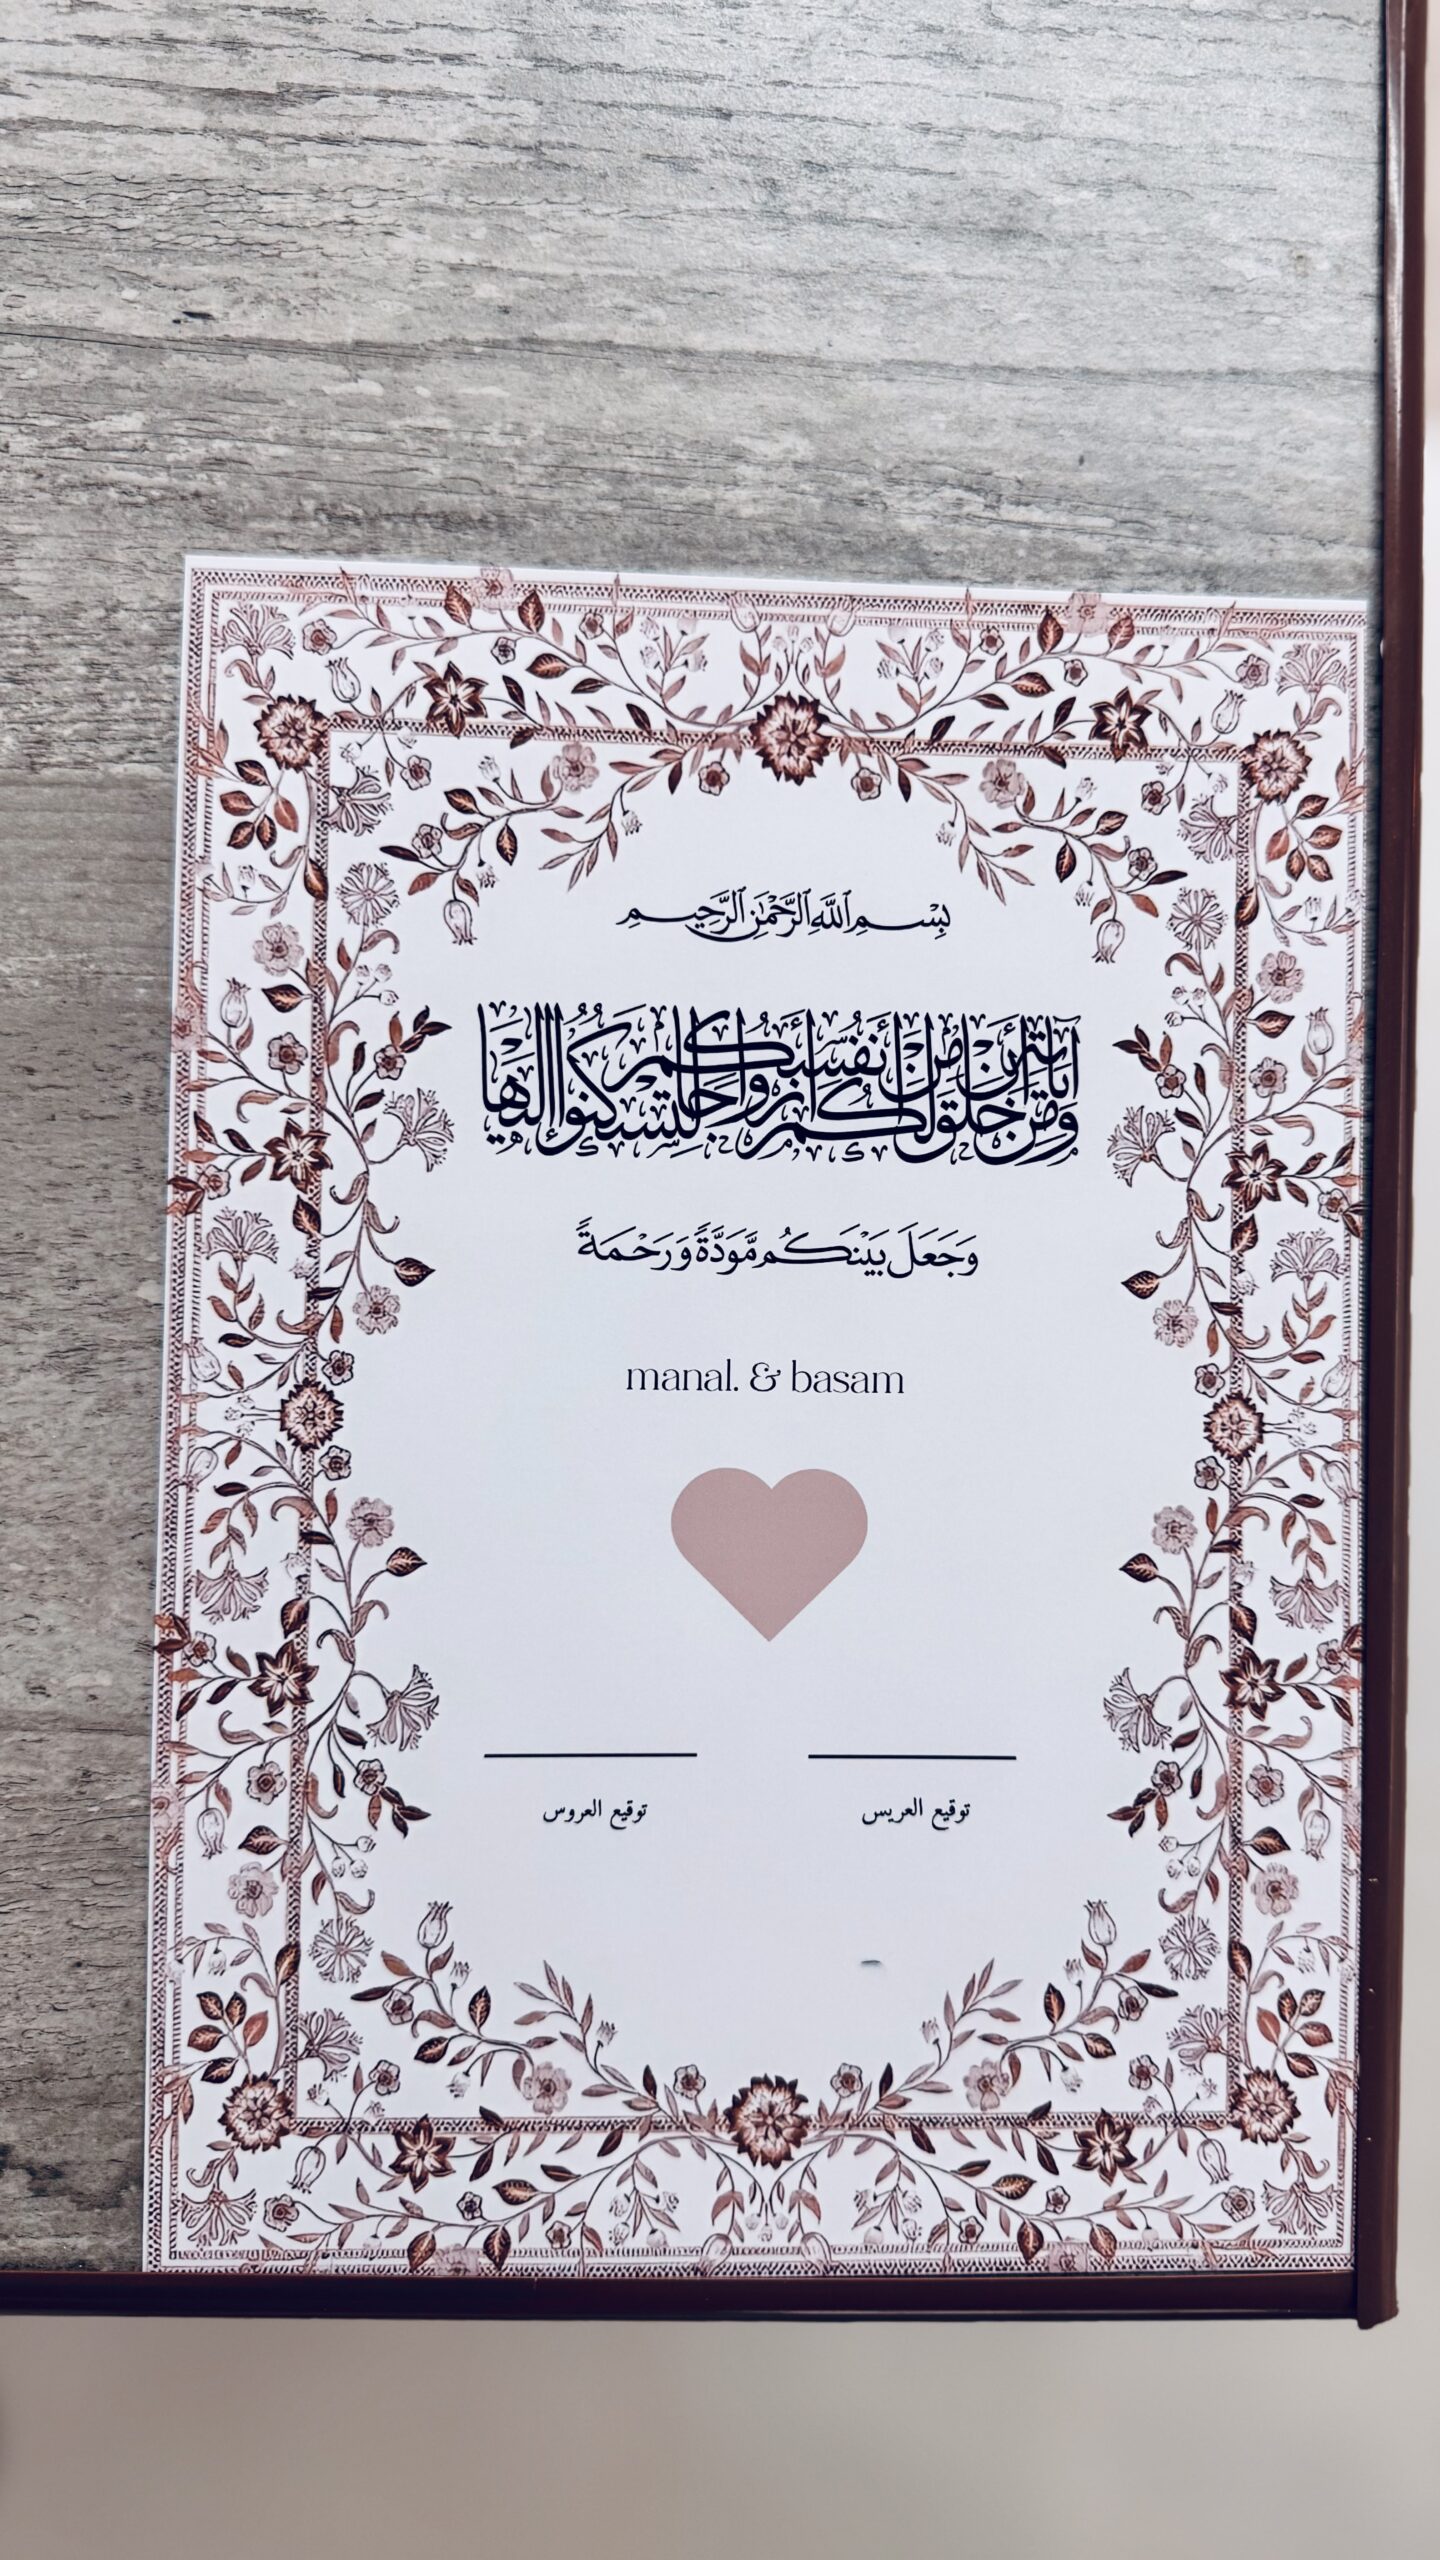 بِسْمِ ٱللَّهِ ٱلرَّحْمَٰنِ ٱلرَّحِيمِ
وَمِنْ آيَاتِهِ أَنْ خَلَقَ لَكُمْ مِنْ أَنْفُسِكُمْ أَزْوَاجًا لِتَسْكُنُوا إِلَيْهَا
وَجَعَلَ بَيْنَكُم مَّوَدَّةً وَرَحْمَةً
manal. & basam
توقيع العريس توقيع العروس